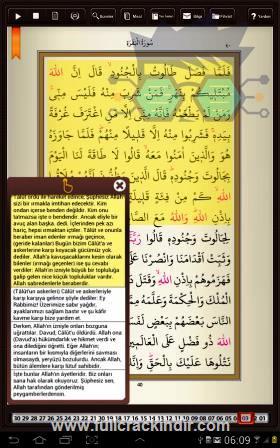 Sureler
Meal
Bilgi
Fihrist
Yardım
سُورَةُ الْبَقَرَةِ
٤٠
فَلَمَّا فَصَلَ طَالُوتُ بِالْجُنُودِ قَالَ اِنَّ اللّٰهَ
مُبْتَلِيكُمْ بِنَهَرٍ فَمَنْ شَرِبَ مِنْهُ فَلَيْسَ مِنِّى
وَمَنْ لَمْ يَطْعَمْهُ فَاِنَّهُ مِنِّى اِلَّا مَنِ اغْتَرَفَ غُرْفَةً
بِيَدِهِ فَشَرِبُوا مِنْهُ اِلَّا قَلِيلًا مِنْهُمْ فَلَمَّا جَاوَزَهُ
هُوَ وَالَّذِينَ اٰمَنُوا مَعَهُ قَالُوا لَا طَاقَةَ لَنَا الْيَوْمَ
بِجَالُوتَ وَجُنُودِهِ قَالَ الَّذِينَ
اللّٰهِ كَمْ مِنْ فِئَةٍ قَلِيلَةٍ
بِاِذْنِ اللّٰهِ وَاللّٰهُ مَعَ
لِجَالُوتَ وَجُنُودِهِ قَالُوا
اَقْدَامَنَا وَانْصُرْنَا
فَهَزَمُوهُمْ بِاِذْنِ اللّٰهِ وَقَتَلَ
الْمُلْكَ وَالْحِكْمَةَ وَعَلَّمَهُ
النَّاسَ بَعْضَهُمْ بِبَعْضٍ
اللّٰهَ ذُو فَضْلٍ عَلَى
نَتْلُوهَا عَلَيْكَ بِالْحَقِّ
Tâlût ordu ile hareket edince, Şüphesiz Allah
sizi bir ırmakla imtihan edecektir. Kim
ondan içerse benden değildir. Kim onu
tatmazsa işte o bendendir. Ancak eliyle bir
avuç alan başka. dedi. İçlerinden pek azı
hariç, hepsi ırmaktan içtiler. Tâlût ve onunla
beraber iman edenler ırmağı geçince,
(geride kalanlar) Bugün bizim Câlût'a ve
askerlerine karşı koyacak gücümüz yok
dediler. Allah'a kavuşacaklarını kesin olarak
bilenler (ırmağı geçenler) ise şu cevabı
verdiler: Allah'ın izniyle büyük bir topluluğa
galip gelen nice küçük topluluklar vardır.
Allah sabredenlerle beraberdir.
(Tâlût'un askerleri) Câlût ve askerleriyle
karşı karşıya gelince şöyle dediler: Ey
Rabbimiz! Üzerimize sabır yağdır,
ayaklarımızı sağlam bastır ve şu kâfir
kavme karşı bize yardım et.
Derken, Allah'ın izniyle onları bozguna
uğrattılar. Davud, Câlût'u öldürdü. Allah ona
(Davud'a) hükümdarlık ve hikmet verdi ve
ona dilediğini öğretti. Eğer Allah'ın;
insanların bir kısmıyla diğerlerini savması
olmasaydı, yeryüzü bozulurdu. Ancak Allah,
bütün âlemlere karşı lütuf sahibidir.
İşte bunlar Allah'ın âyetleridir. Biz onları
sana hak olarak okuyoruz. Şüphesiz sen,
Allah tarafından gönderilmiş
peygamberlerdensin.
40
www.fullcrackindir.com
30 29 28 27 26 25 24 23 22 21 20 19 18 17 16 15 14 13 12 11 10 09 08 07 06 05 04 03 02 01
06:09